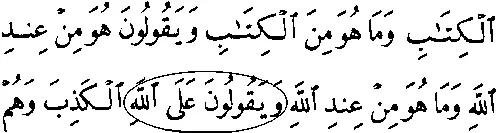 ٱلْكِتَٰبِ وَمَا هُوَ مِنَ ٱلْكِتَٰبِ وَيَقُولُونَ هُوَ مِنْ عِندِ
ٱللَّهِ وَمَا هُوَ مِنْ عِندِ ٱللَّهِ وَيَقُولُونَ عَلَى ٱللَّهِ ٱلْكَذِبَ وَهُمْ